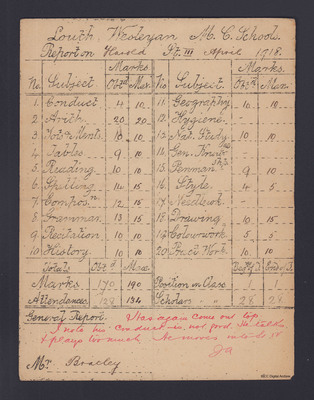 Louth Wesleyan M. C. Schools.
Report on Harold St. III April 1918.
Marks. Marks.
No. Subject Obtd Max. No. Subject. Obtd Max.
1. Conduct 4 10 11. Geography 10 10
2. Arith. 20 20 12. Hygiene.
3. 10 10 13. Nat. Study 10 10
4. Tables 9 10 14. Gen. Know.
5. Reading 10 10 15. Penmanship 9 10
6. Spelling 14 15 16. Style. 4 5
7. Composn 12 15 17. Needlewk.
8. Grammar. 13 15 18. Drawing 10 15
9. Recitation. 10 10 19. Colourwork 5 5
10. History 10 10 20. Pract. Work. 10 10
Totals Obtd Max
Marks. 170 190 Position in Class 1
Attendances. 129 134 Scholars " " 28 28
General Report. Has again come out top.
I note his conduct is not good. He talks
& plays too much. He moves into St
Mr. Bradley